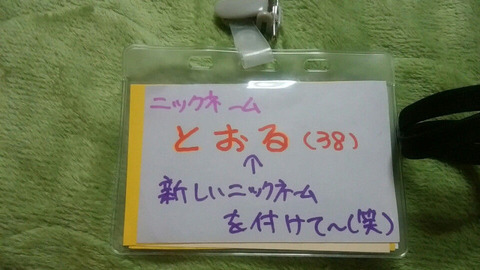 ニックネーム
とおる(38)
↑
新しいニックネーム
を付けて〜(笑)